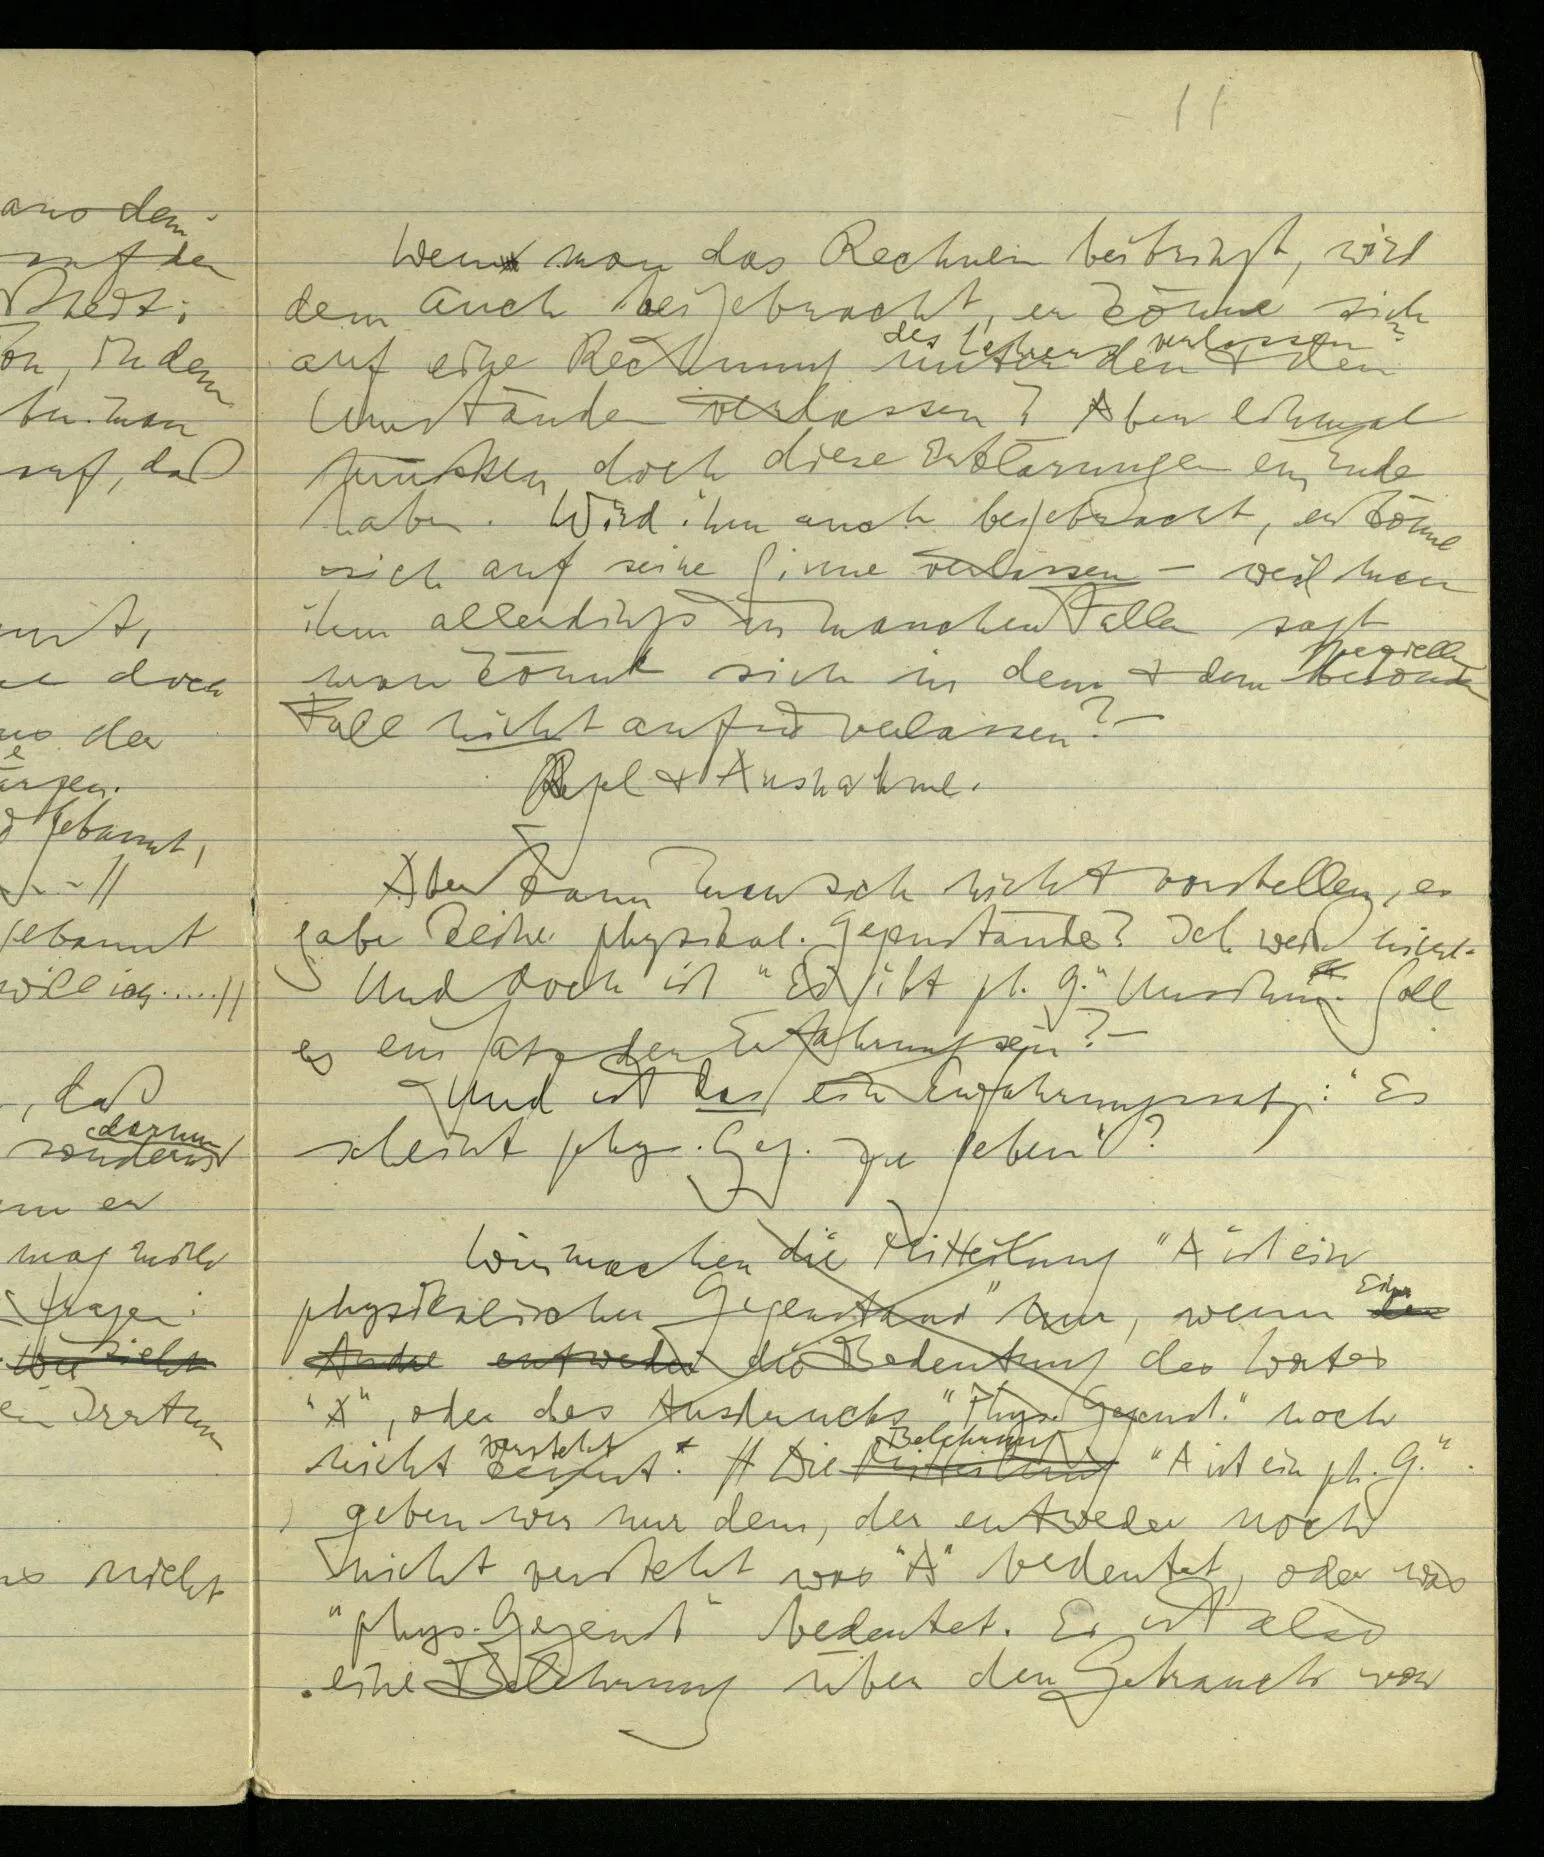 aus dem
auf den
steht;
von, indem
tu. man
auf, daß
doch
aus der
gekannt,
– – //
gekannt
will ich.....//
, daß
darum
sondern
er
mag mich
fragen:
wie sieht
ein Irrtum
nicht
11
Wem man das Rechnen beibringt, wird
dem auch beigebracht, er könne sich
des Lehrers verlassen?
auf eine Rechnung unter den & den
Umständen verlassen? Aber einmal
müssen doch diese Erklärungen ein Ende
haben. Wird ihm auch beigebracht, er könne
sich auf seine Sinne verlassen – weil man
ihm allerdings in manchen Fällen sagt
speziellen
man könne sich in dem & dem besondern
Fall nicht auf sie verlassen? –
Regel & Ausnahme.
Aber kann man sich nicht vorstellen, es
gäbe keine physikal. Gegenstände? Ich weiß nicht.
Und doch ist "Es gibt ph. G." Unsinn. Soll
es ein Satz der Erfahrung sein? –
Und ist das ein Erfahrungssatz: "Es
scheint phys. Geg. zu geben"?
Wir machen die Mitteilung "A ist ein
Einer
physikalischer Gegenstand" nur, wenn der
Andre entweder die Bedeutung des Wortes
"A", oder des Ausdrucks "Phys. Gegenst." noch
versteht Belehrung
nicht kennt. // Die Mitteilung "A ist ein ph. G."
geben wir nur dem, der entweder noch
nicht versteht was "A" bedeutet, oder was
"phys. Gegenst" bedeutet. Es ist also
eine Belehrung über den Gebrauch von